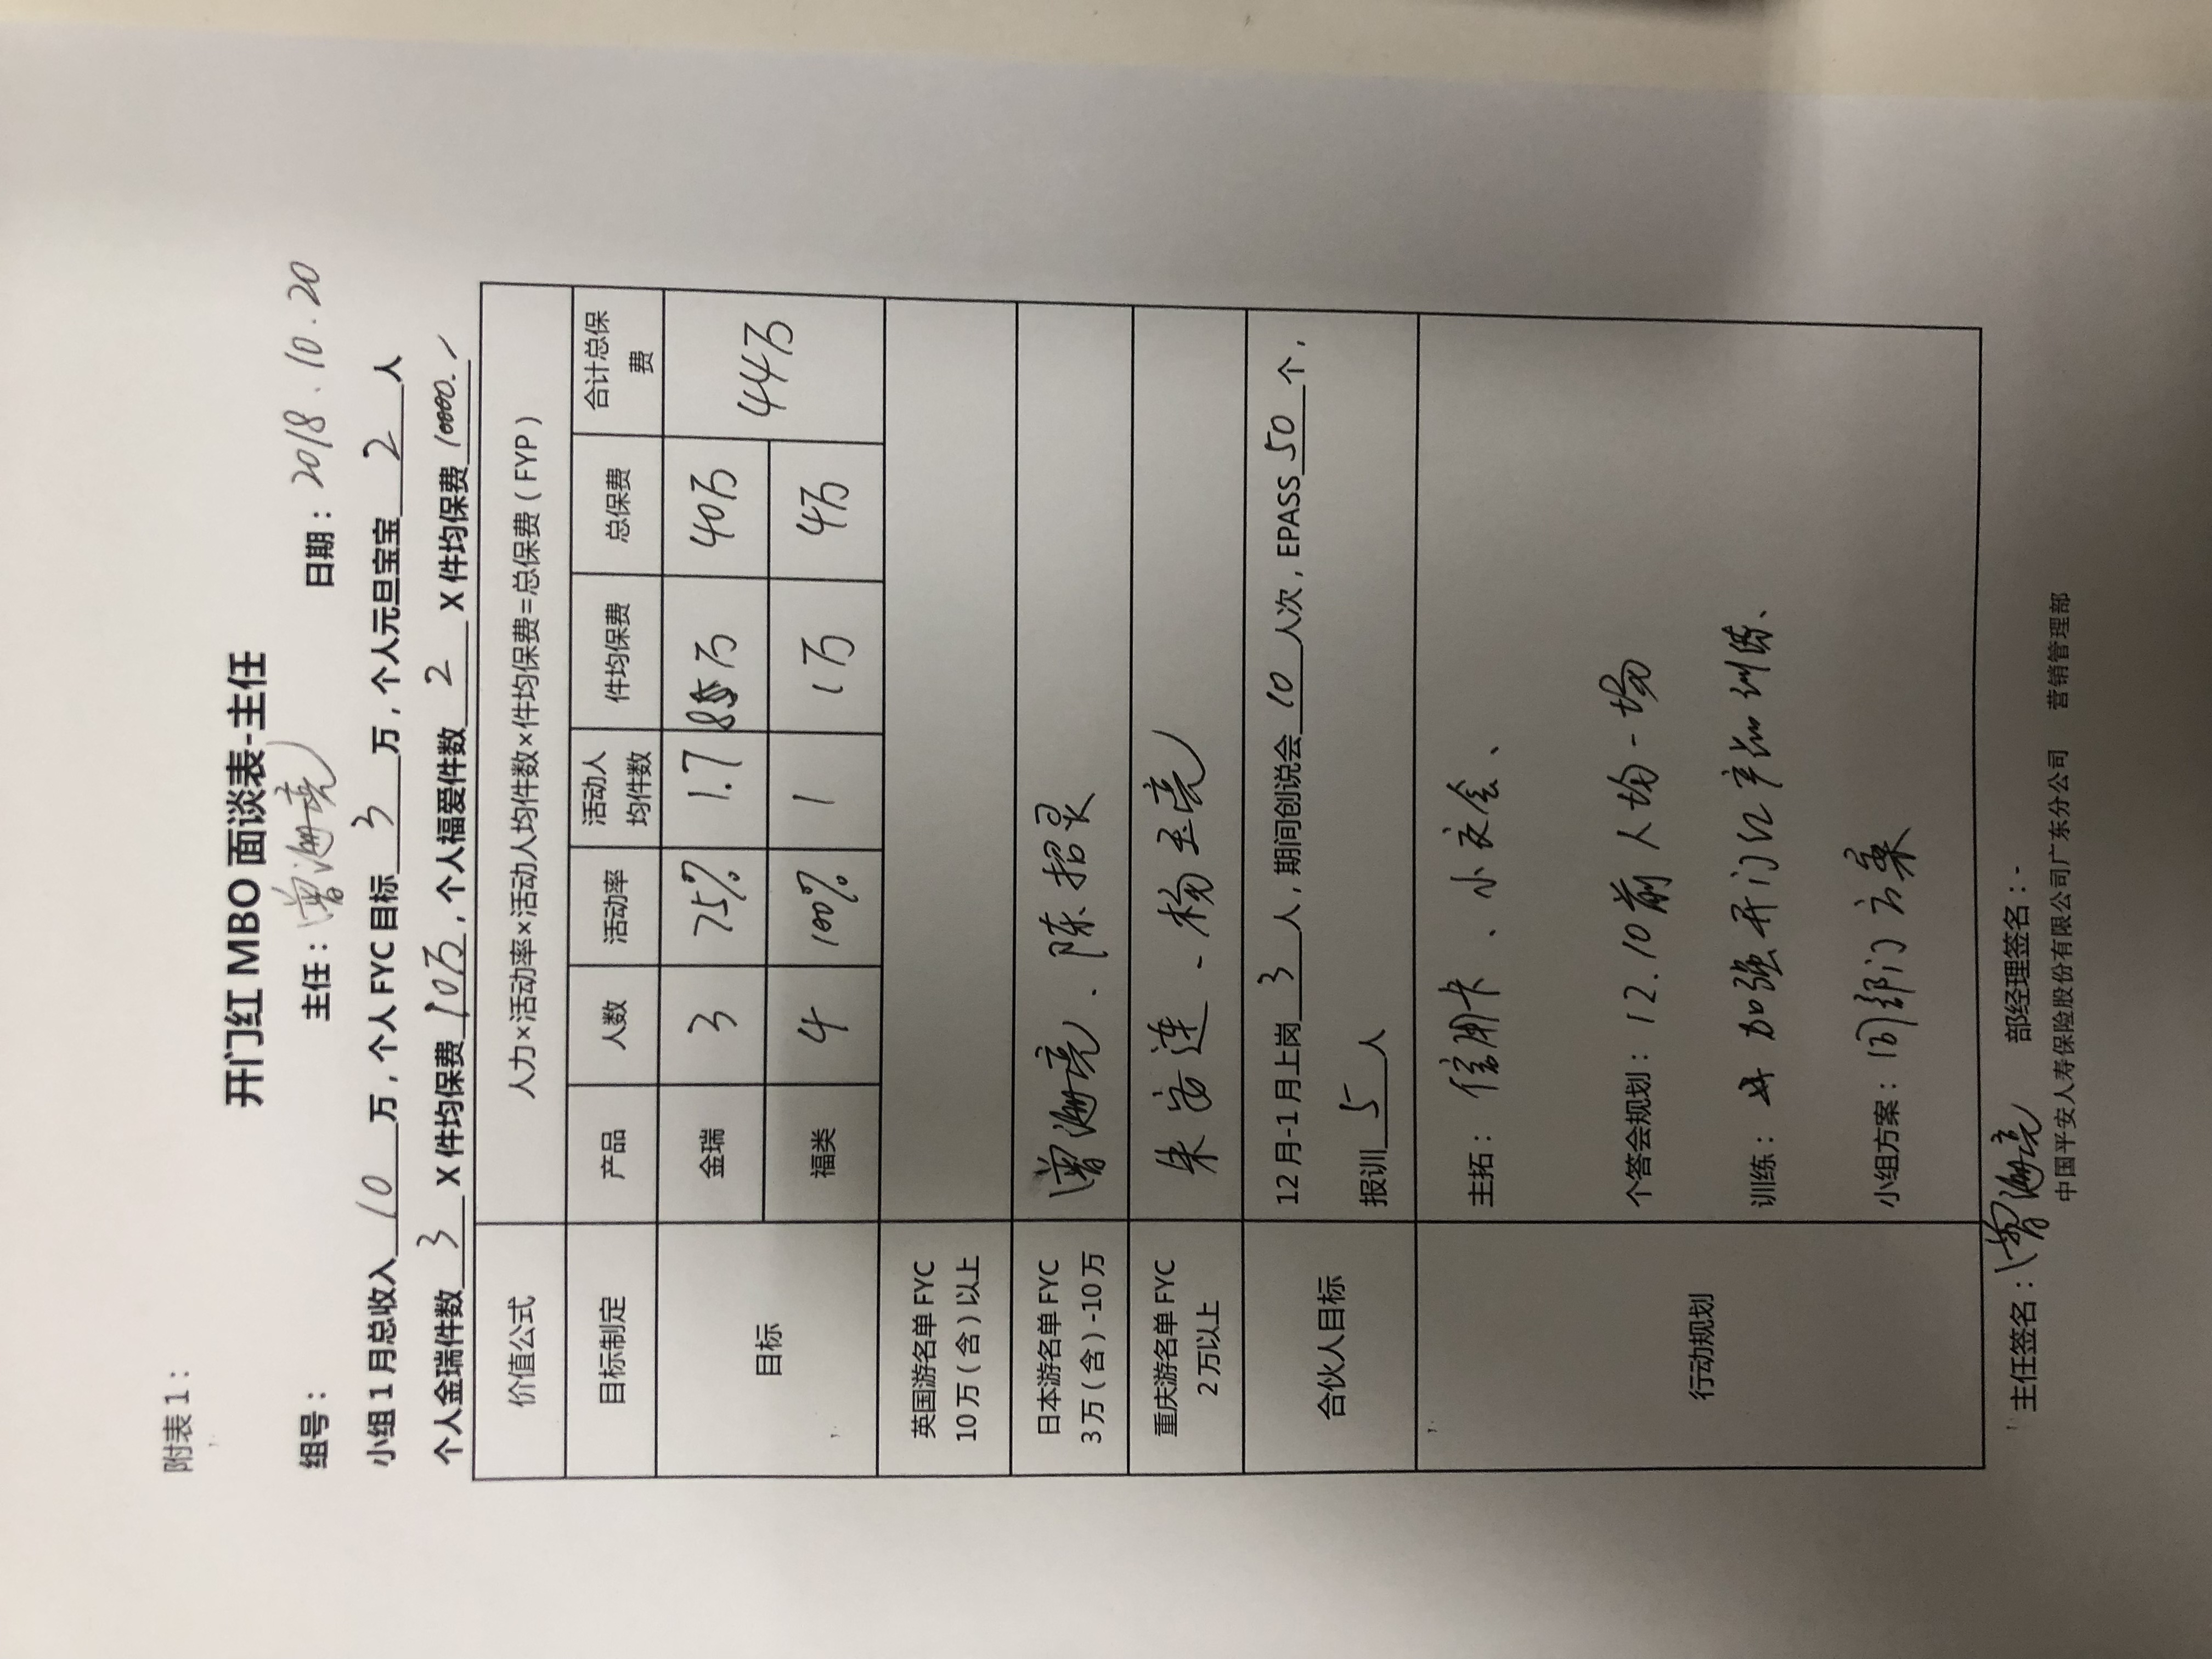 附表1：
开门红 MBO 面谈表-主任
组号： 主任：曾海亮 日期：2018.10.20
小组1月总收入10万，个人FYC目标3万，个人元旦宝宝2人
个人金瑞件数3X件均保费10万，个人福爱件数2X件均保费10000.
价值公式 人力×活动率×活动人均件数×件均保费=总保费（FYP）
目标制定 产品 人数 活动率 活动人均件数 件均保费 总保费 合计总保费
目标 金瑞 3 75% 1.7 万 40万 44万
福类 4 100% 1 1万 4万
英国游名单FYC
10万（含）以上
日本游名单FYC
3万（含）-10万
曾海亮、陈招
重庆游名单FYC
2万以上
朱 连、杨玉亮
合伙人目标
12月-1月上岗3人，期间创说会10人次，EPASS50个，
报训5人
行动规划
主拓：信用卡、小交会、
个答会规划：12.10前人均一场
训练：加强开门红产品训练、
小组方案：同部门方案
主任签名：曾海亮 部经理签名：-
中国平安人寿保险股份有限公司广东分公司 营销管理部